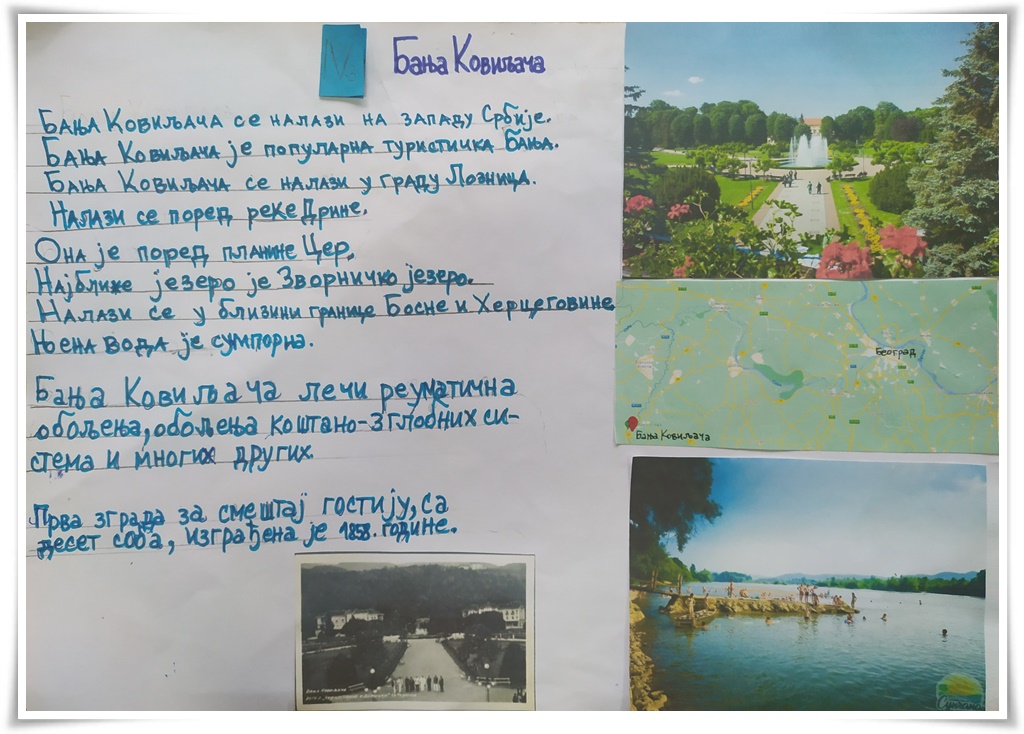 Бања Ковиљача
Бања Ковиљача се налази на западу Србије.
Бања Ковиљача је популарна туристичка Бања.
Бања Ковиљача се налази у граду Лозница.
Налази се поред реке Дрине.
Она је поред планине Цер.
Најближе језеро је Зворничко језеро.
Налази се у близини границе Босне и Херцеговине
Њена вода је сумпорна.
Бања Ковиљача лечи реуматична
обољења, обољења коштано-зглобних си-
стема и многих других
Прва зграда за смештај гостију, са
десет соба, изграђена је 1858. године.
Београд
Бања Ковиљача
Бања Ковиљача